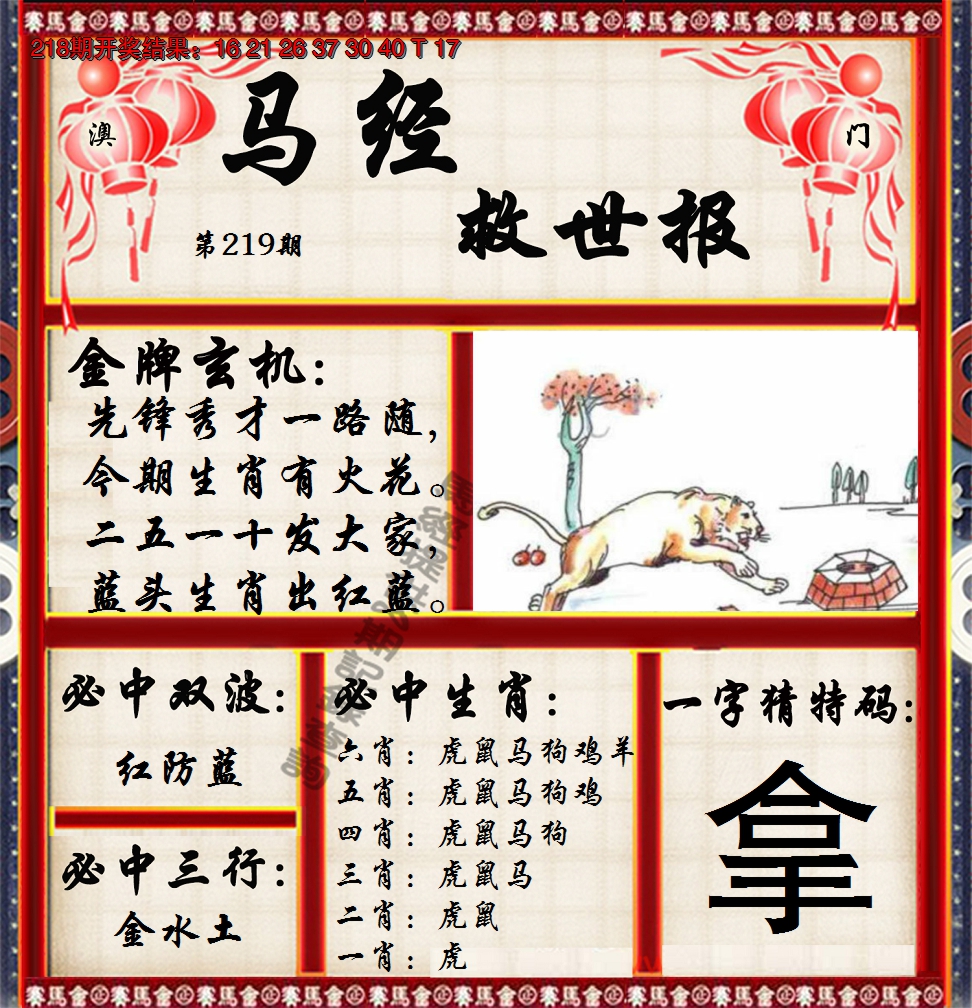 赛馬會 赛馬會 赛馬會 赛馬會 赛馬會 赛馬會 赛馬會
218期开奖结果：16 21 26 37 30 40 T 17
澳
门
马经
救世报
第219期
金牌玄机：
先锋秀才一路随，
今期生肖有火花。
二五一十发大家，
蓝头生肖出红蓝。
必中双波：
红防蓝
必中三行：
金水土
必中生肖：
六肖：虎鼠马狗鸡羊
五肖：虎鼠马狗鸡
四肖：虎鼠马狗
三肖：虎鼠马
二肖：虎鼠
一肖：虎
一字猜特码：
拿